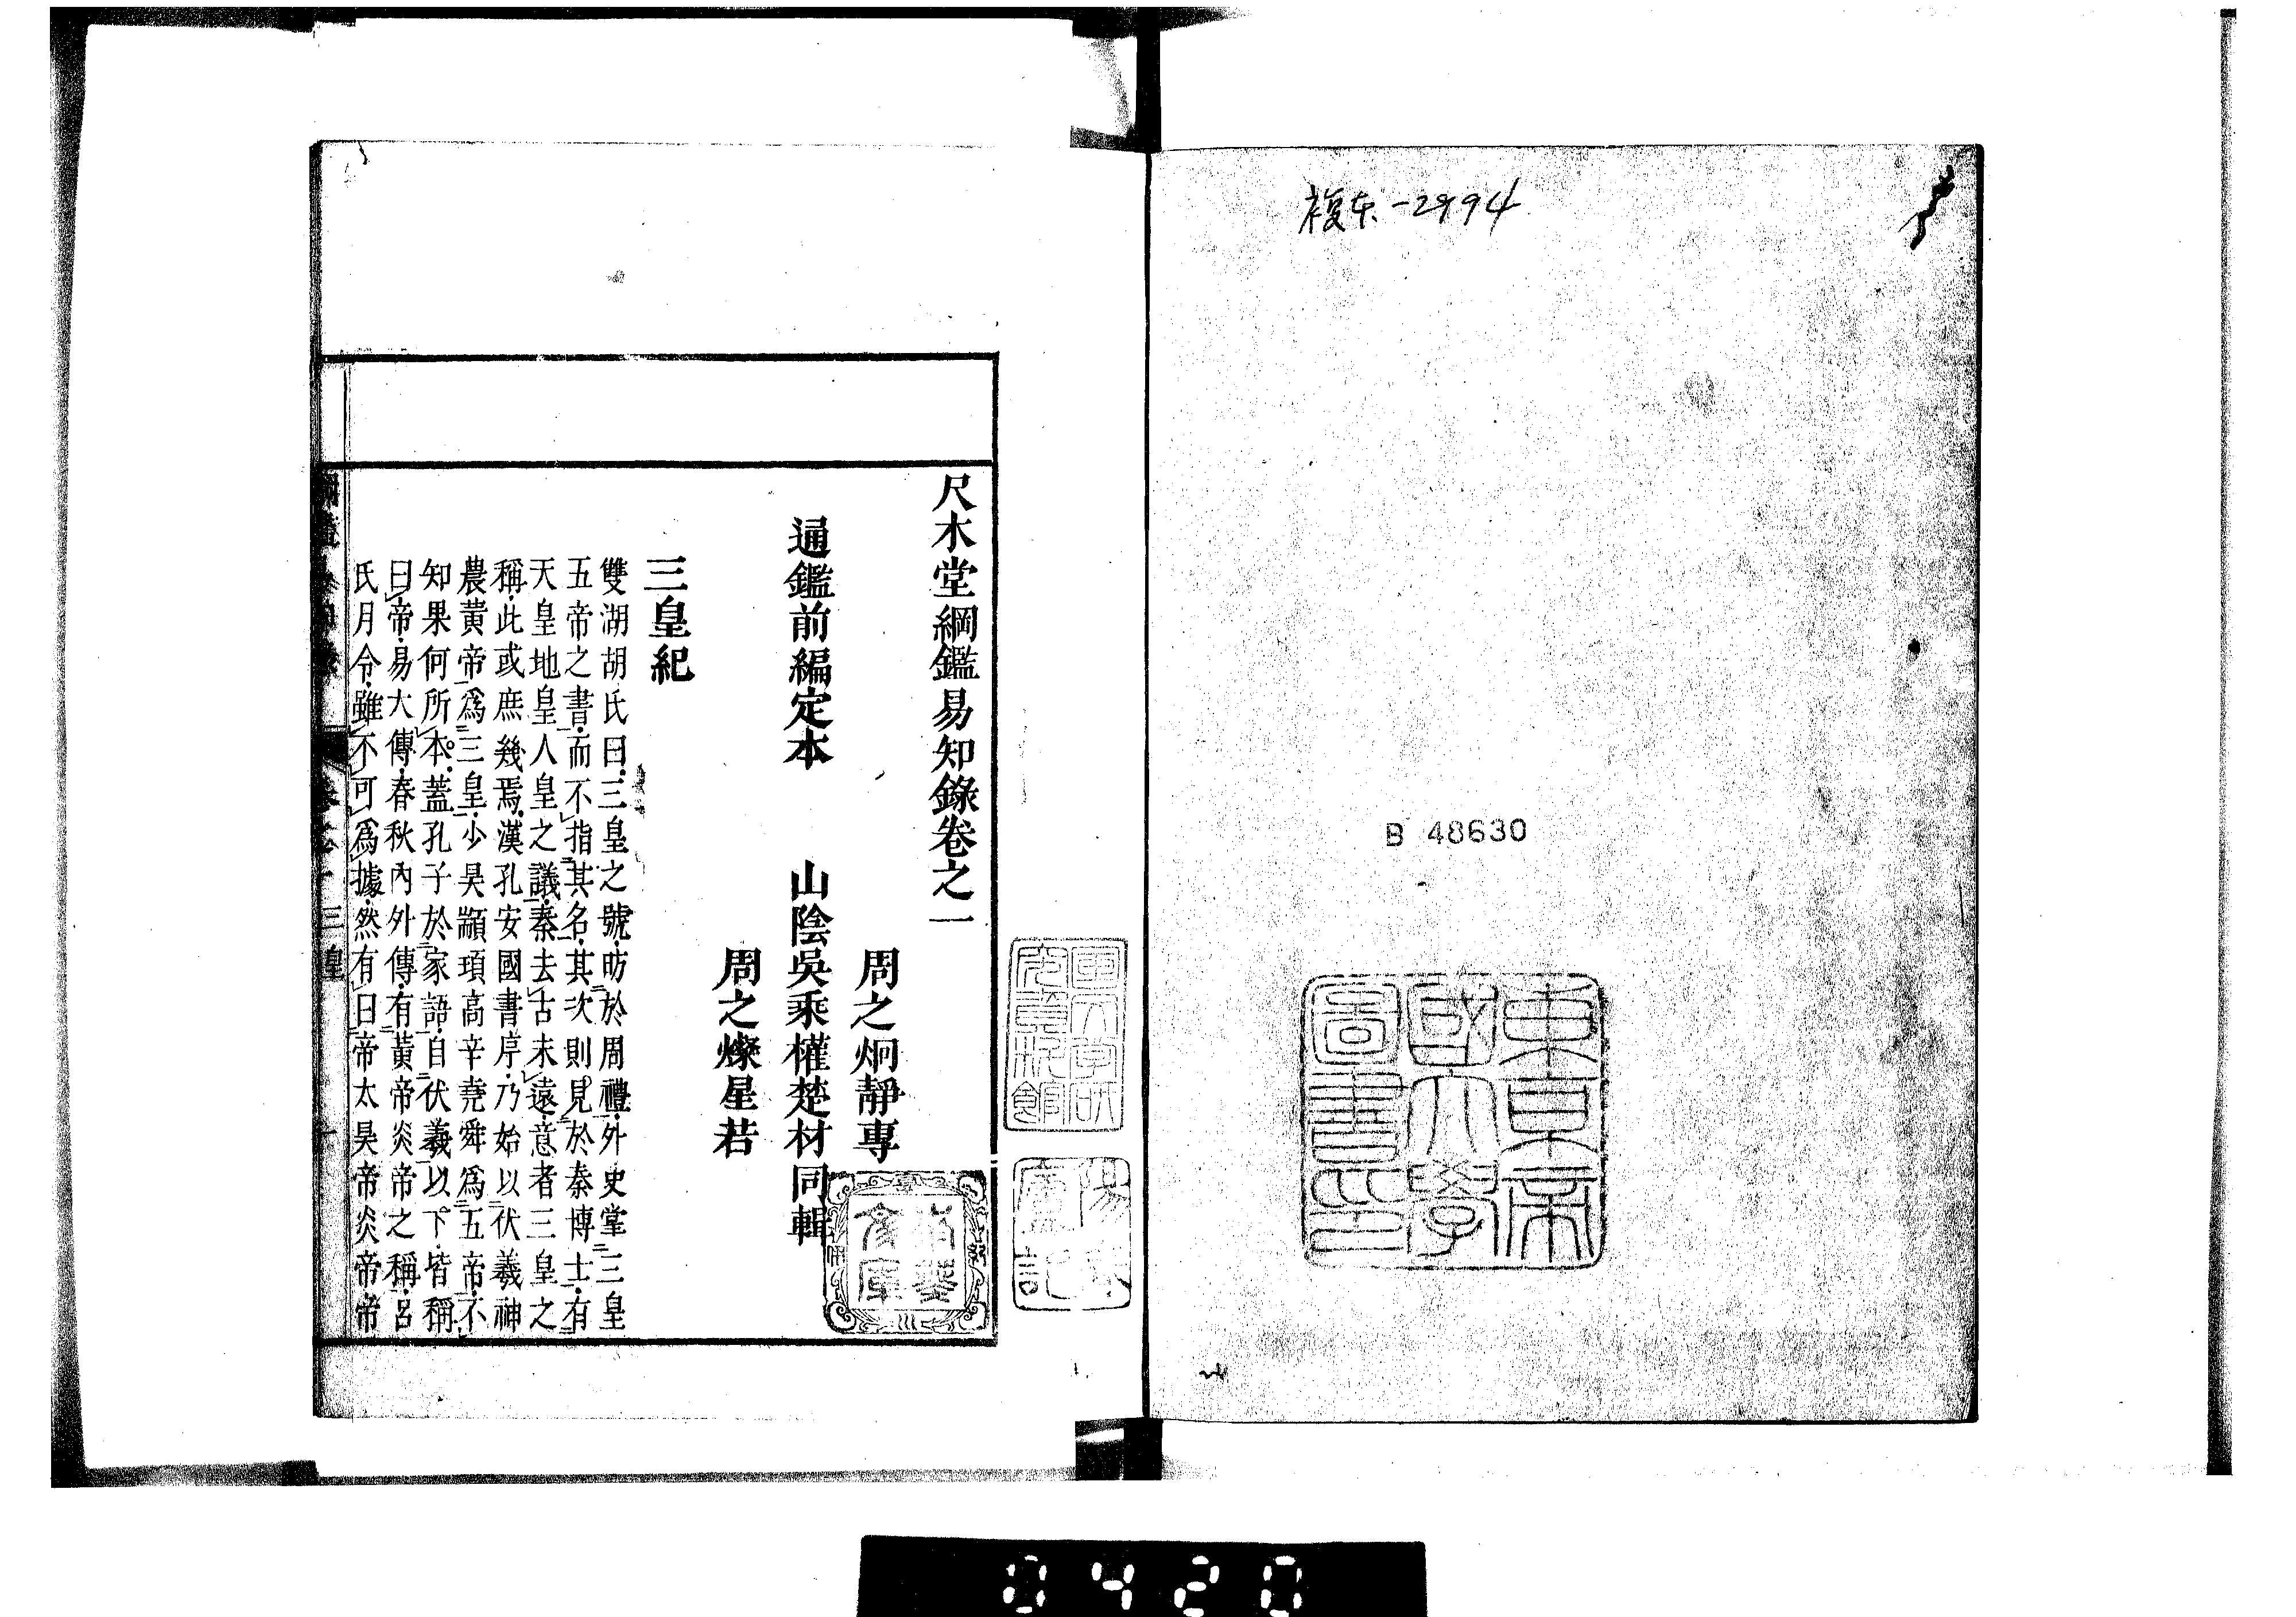 複本-2994
B 48630
東京帝
國大學
圖書印
尺木堂綱鑑易知錄卷之一
周之炯靜專
通鑑前編定本 山陰吳乘權楚材同輯
周之燦星若
三皇紀
雙湖胡氏曰三皇之號昉於周禮外史堂三皇
五帝之書而不指其名其次則見於秦博士有
天皇地皇人皇之議秦去古未遠意者三皇之
稱此或庶幾焉漢孔安國書序乃始以伏羲神
農黃帝爲三皇少昊顓頊高辛堯舜爲五帝不
知果何所本蓋孔子於家語自伏羲以下皆稱
曰帝易大傳春秋內外傳有黃帝炎帝之稱呂
氏月令雖不可爲據然有曰帝太昊帝炎帝帝
三皇
0420